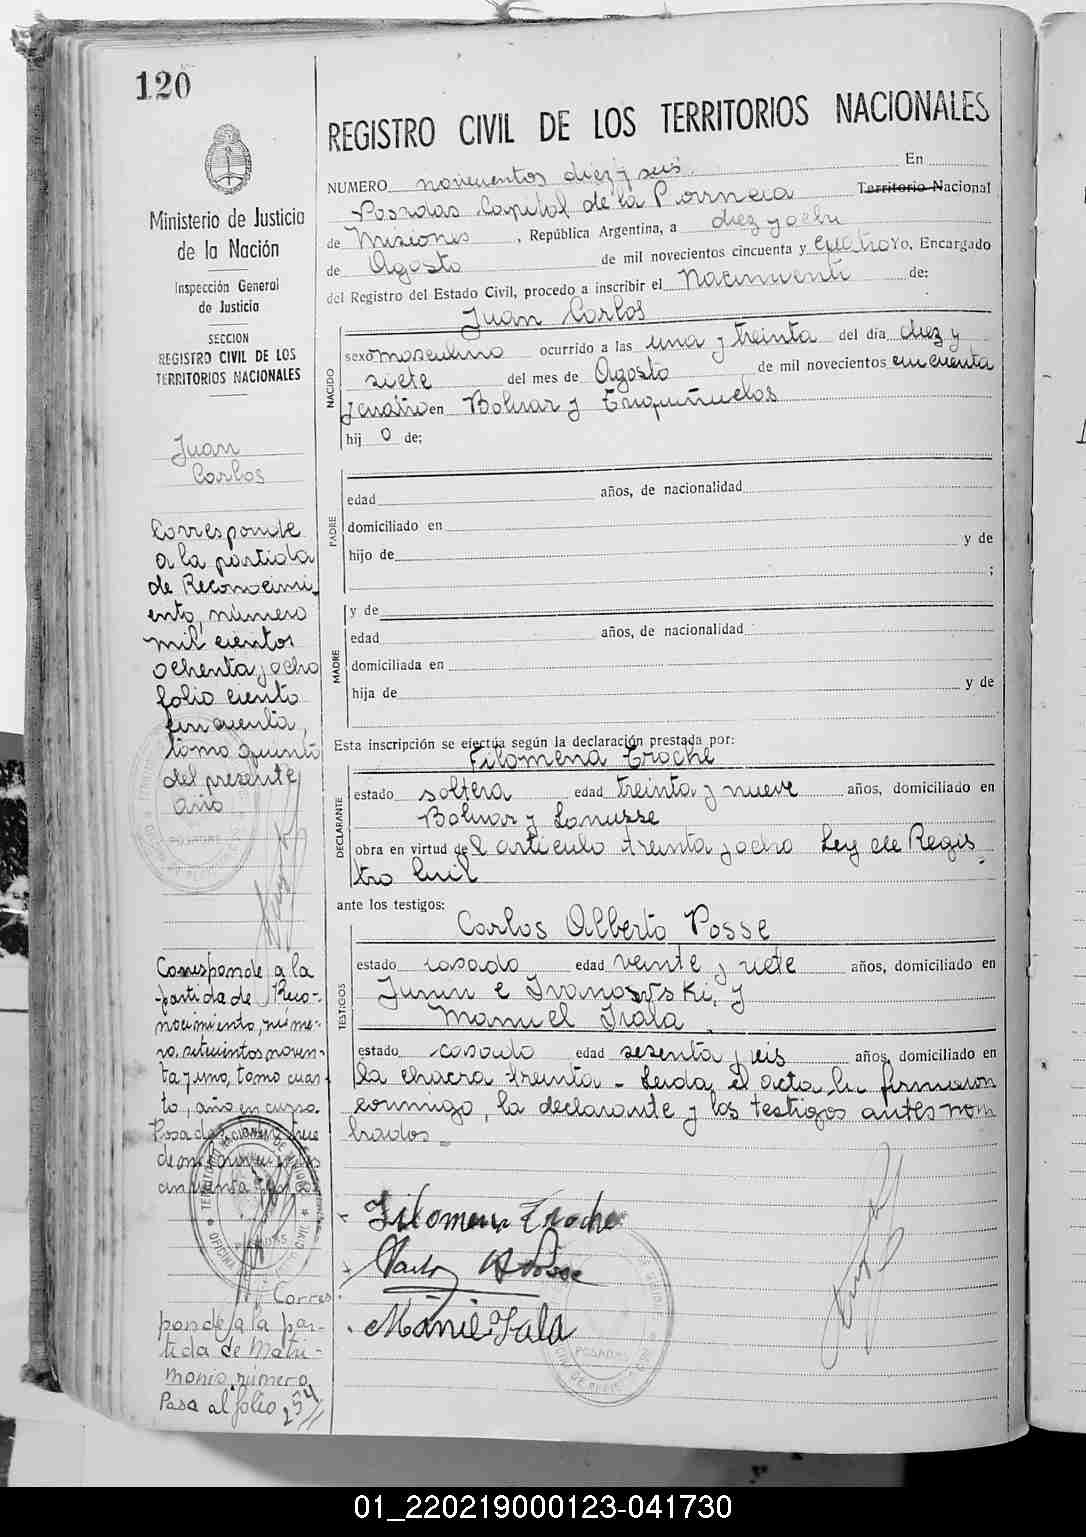 120
REGISTRO CIVIL DE LOS TERRITORIOS NACIONALES
Ministerio de Justicia
de la Nación
Inspección General
de Justicia
SECCION
REGISTRO CIVIL DE LOS
TERRITORIOS NACIONALES
Juan
Carlos
Corresponde
a la partida
de Reconocimi
ento, número
mil cientos
ochenta y ocho
folio ciento
cincuenta,
tomo quinto
del presente
año
Corresponde a la
partida de Reco-
nocimiento, núme-
ro, setecientos noven-
ta y uno, tomo cuar-
to, año en curso.
Corres
ponde a la par-
tida de Matri-
monio número
Pasa al folio 234
NUMERO novecientos diez y seis. En
Posadas Capital de la Provincia Territorio Nacional
de Misiones, República Argentina, a diez y ocho
de Agosto de mil novecientos cincuenta y cuatro yo, Encargado
del Registro del Estado Civil, procedo a inscribir el Nacimiento de:
Juan Carlos
NACIDO
sexo masculino ocurrido a las una y treinta del día diez y
siete del mes de Agosto de mil novecientos cincuenta
y cuatro en Bolivar y
hij o de;
PADRE
edad años, de nacionalidad
domiciliado en
hijo de y de
;
MADRE
y de
edad años, de nacionalidad
domiciliada en
hija de y de
Esta inscripción se efectúa según la declaración prestada por:
Filomena Troche
DECLARANTE
estado soltera edad treinta y nueve años, domiciliado en
Bolivar y Lanusse
obra en virtud del artículo treinta y ocho Ley de Regis
tro Civil
ante los testigos:
Carlos Alberto Posse
TESTIGOS
estado casado edad veinte y siete años, domiciliado en
Junin e Ivanowski, y
Manuel Irala
estado casado edad sesenta y seis años, domiciliado en
la chacra treinta - Leida el acta la firmaron
conmigo, la declarante y los testigos antes nom
brados -
Filomena Troche
Carlos A Posse
POSADAS
01_220219000123-041730